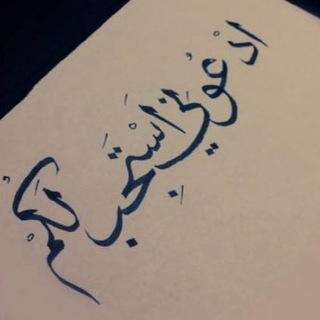 ادْعُونِي أَسْتَجِبْ لَكُمْ